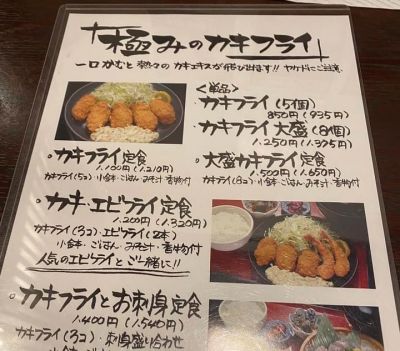 「極みのカキフライ」
一口かむと熱々のカキエキスが飛び出す!! ヤケドにご注意
<単品>
カキフライ(5個)
850円(935円)
カキフライ大盛(8個)
1.250円(1.375円)
・カキフライ定食
1.100円(1.210円)
カキフライ(5コ)・小鉢・ごはん・みそ汁・香物付
・大盛カキフライ定食
1.500円(1.650円)
カキフライ(8コ)・小鉢・ごはん・みそ汁・香物付
・カキ・エビフライ定食
1.200円(1.320円)
カキフライ(3コ)・エビフライ(2本)
小鉢・ごはん・みそ汁・香物付
人気のエビフライとご一緒に!!
・カキフライとお刺身定食
1.400円(1.540円)
カキフライ(3コ)・刺身盛り合わせ